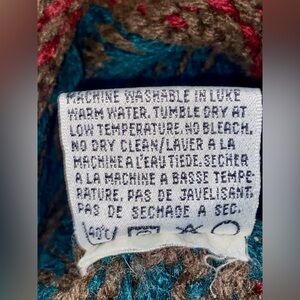 MACHINE WASHABLE IN LUKE
WARM WATER. TUMBLE DRY AT
LOW TEMPERATURE. NO BLEACH.
NO DRY CLEAN/LAVER A LA
MACHINE A L'EAU TIEDE. SECHER
A LA MACHINE A BASSE TEMPE-
RATURE. PAS DE JAVELISANT.
PAS DE SECHAGE A SEC.
40°C